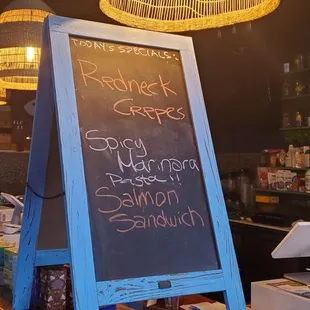 TODAY'S SPECIALS:
Redneck
Crepes
Spicy
Marinara
Pasta!!
Salmon
Sandwich